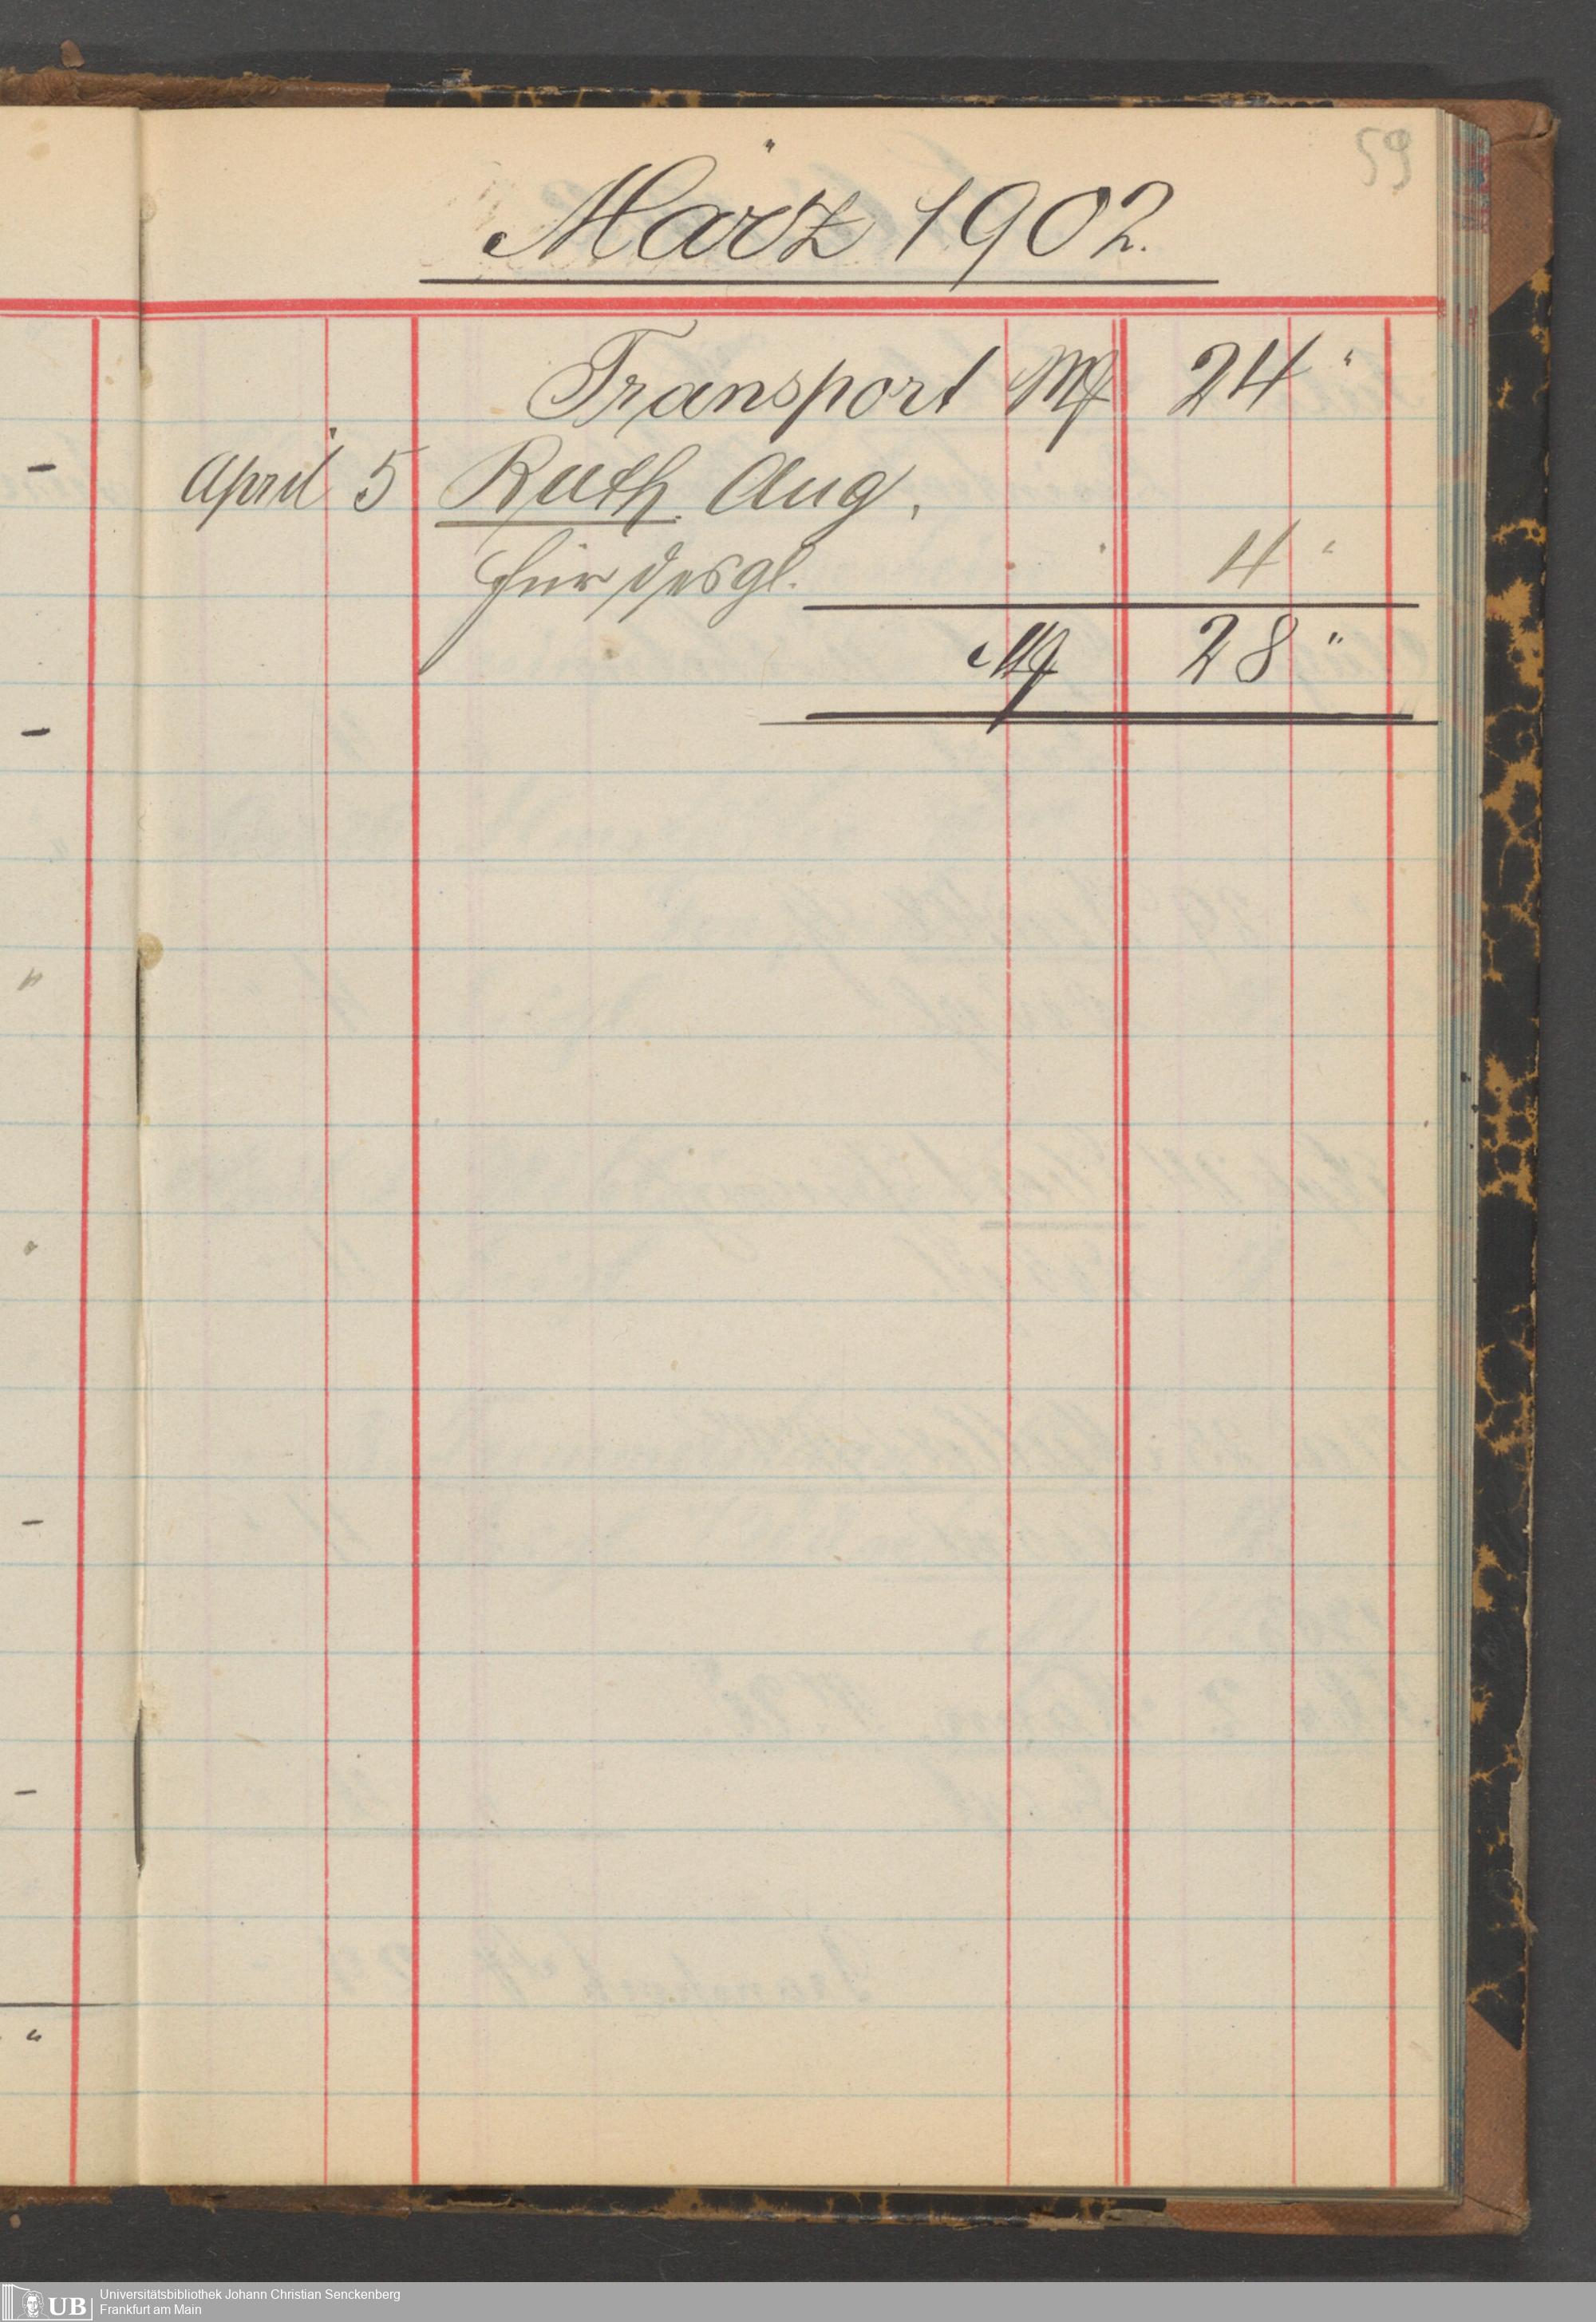 59
März 1902.
Transport M 24 "
April 5 Ruth Aug.
für desgl. " 4 "
M 28 "
UB Universitätsbibliothek Johann Christian Senckenberg
Frankfurt am Main